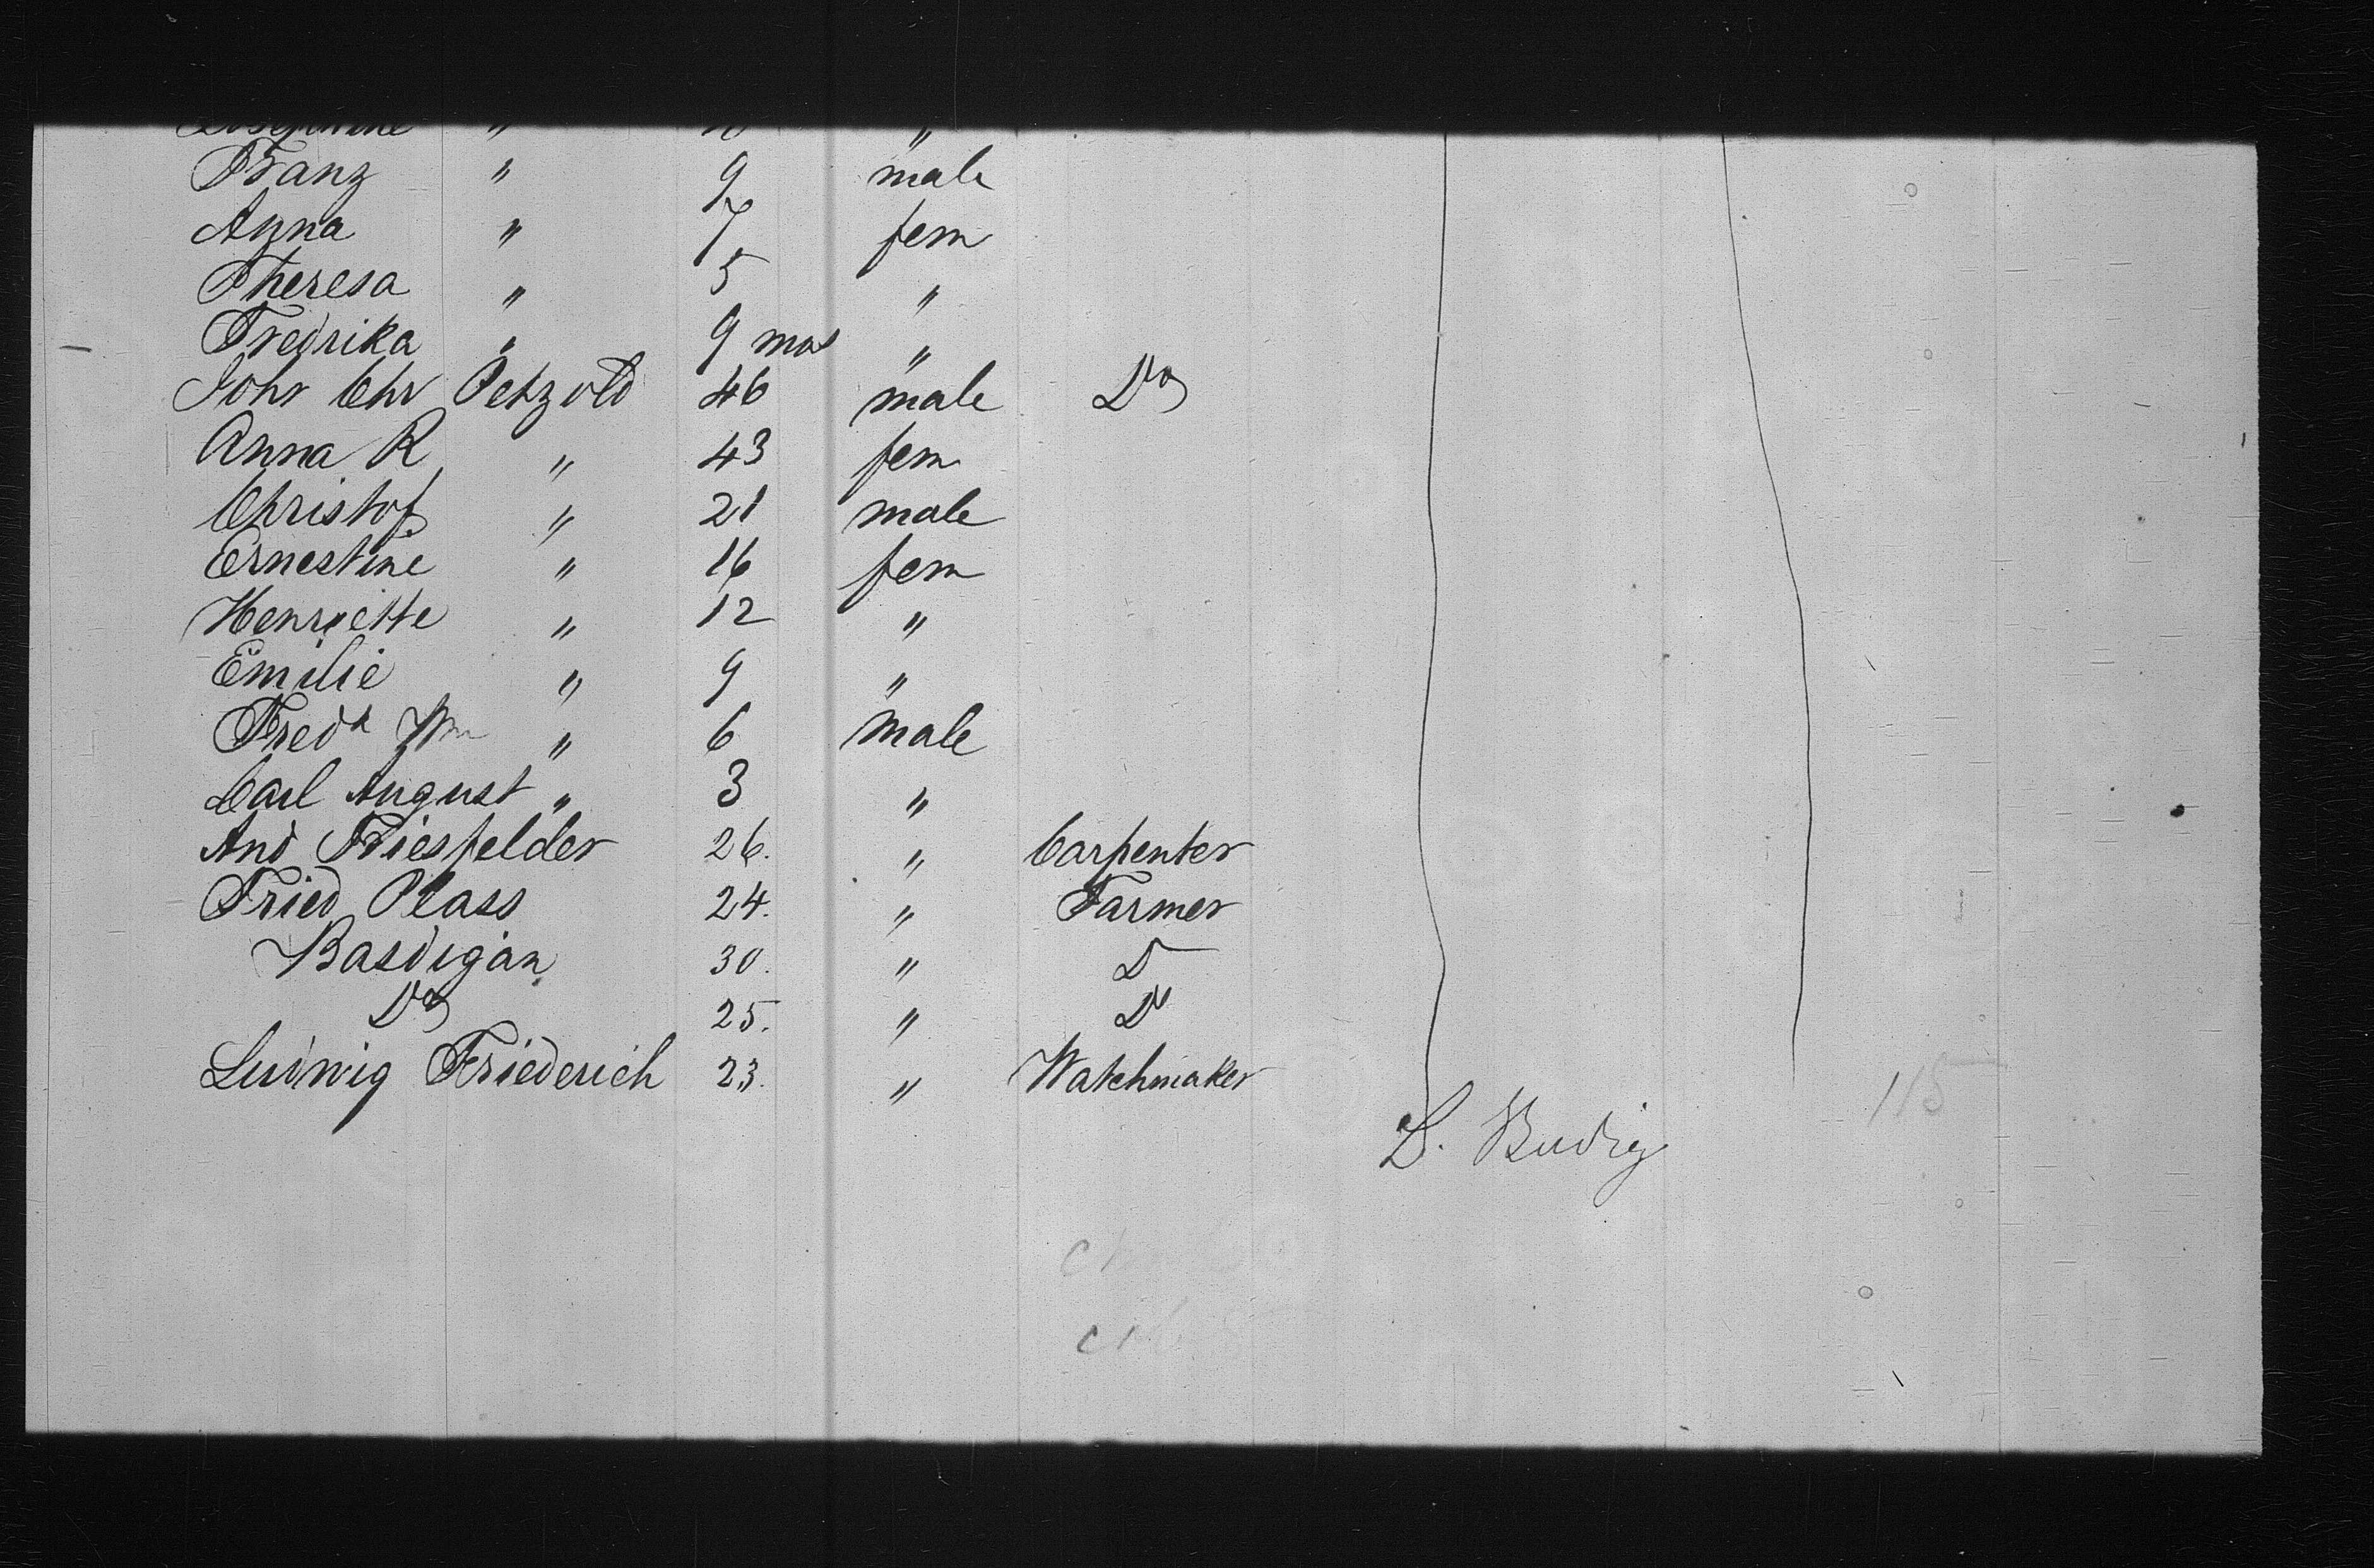 Josephine "
Franz " 9 male
Anna " 7 fem
Theresa " 5 "
Fredrika " 9 mos "
Johr Chr Petzold 46 male Do
Anna R " 43 fem
Christof " 21 male
Ernestine " 16 fem
Henriette " 12 "
Emilie " 9 "
Fredk Wm " 6 male
Carl August " 3 "
And Friesfelder 26. " Carpenter
Fried Plass 24. " Farmer
Basdigan 30. " D
Do 25. " Do
Ludwig Friederich 23. " Watchmaker
L. Budig
115